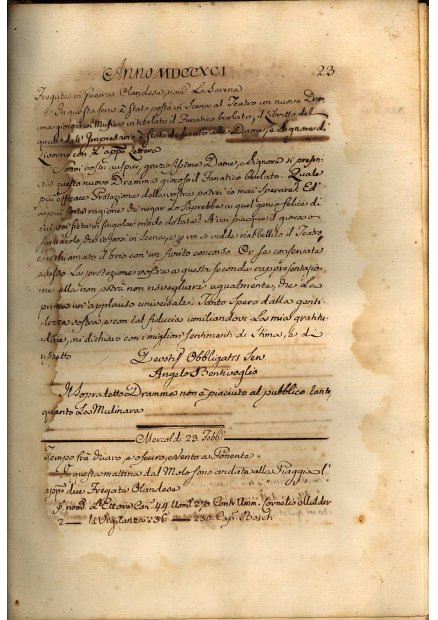 Anno MDCCXCI 23
Fregata in Guerra Olandese, nom.
In questa sera è stato posto in Scena al Teatro un nuovo Dra-
ma giocoso in Musica intitolato il Fanatico burlato, il Libretto del
quale dall' Impresario è stato dedicato alle Dame, e Signore di
Livorno con l'app.e Lettera
Sotto i vostri auspicj, graziosissime Dame, e Signore si presen-
ta questo nuovo Dramma giocoso il Fanatico burlato. Quale
più efficace Protezione della vostra potrei io mai sperare? Ed
a più forte ragione chi negar Lo saprebbe a quel genio felice di
cui voi siete in singolar modo dotate? A voi piacque il giocoso
spettacolo, che io posi in Scena, e per voi si vidde riabbellito il Teatro
e richiamato il brio con un fiorito concorso. Or se conservate
adesso La protezione vostra a questa seconda rappresentazio-
ne ella non potrà non risvegliare ugualmente, che La
prima un applauso universale. Tanto spero dalla genti-
lezza vostra, e con tal fiducia umiliandovi La mia gratitu-
dine, mi dichiaro con i migliori sentimenti di stima, e di
rispetto
Devotis. Obbligatis Ser.
Angelo Bentivoglio
Il Sopradetto Dramma non è piaciuto al pubblico tanto,
quanto La Mulinara
Mercoldì 23. Febb.
Tempo frà chiaro, e oscuro, e Vento a Ponente
In questa mattina dal Molo sono andate alla Piaggia l'
app.e due Fregate Olandese
P.a nom. L'Ettore Can. 44 Uom. 270 Cont. Amm. Cornelio
2 la Vigilanza 36 230 Cap. Bosch